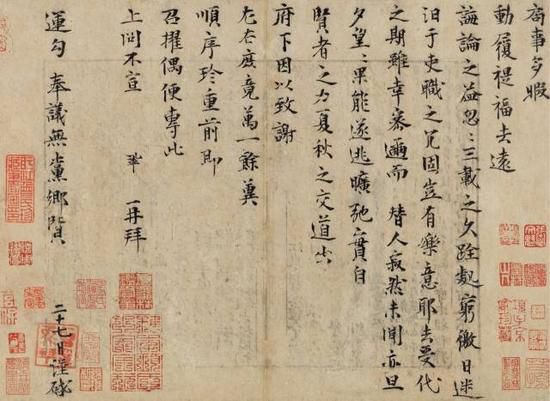 局事多暇
動履禔福去遠
誨論之益忽〻三載之久跧處窮徼日迷
汨于吏職之冗固豈有樂意耶去受代
之期雖幸密邇而替人寂然未聞亦旦
夕望〻果能遂逃曠弛實自
賢者之力夏秋之交道出
府下因以致謝
左右庶竟萬一餘冀
順序珍重前即
召擢偶便專此
上問不宣 鞏再拜
運勾奉議無黨鄉賢
二十七日謹啟